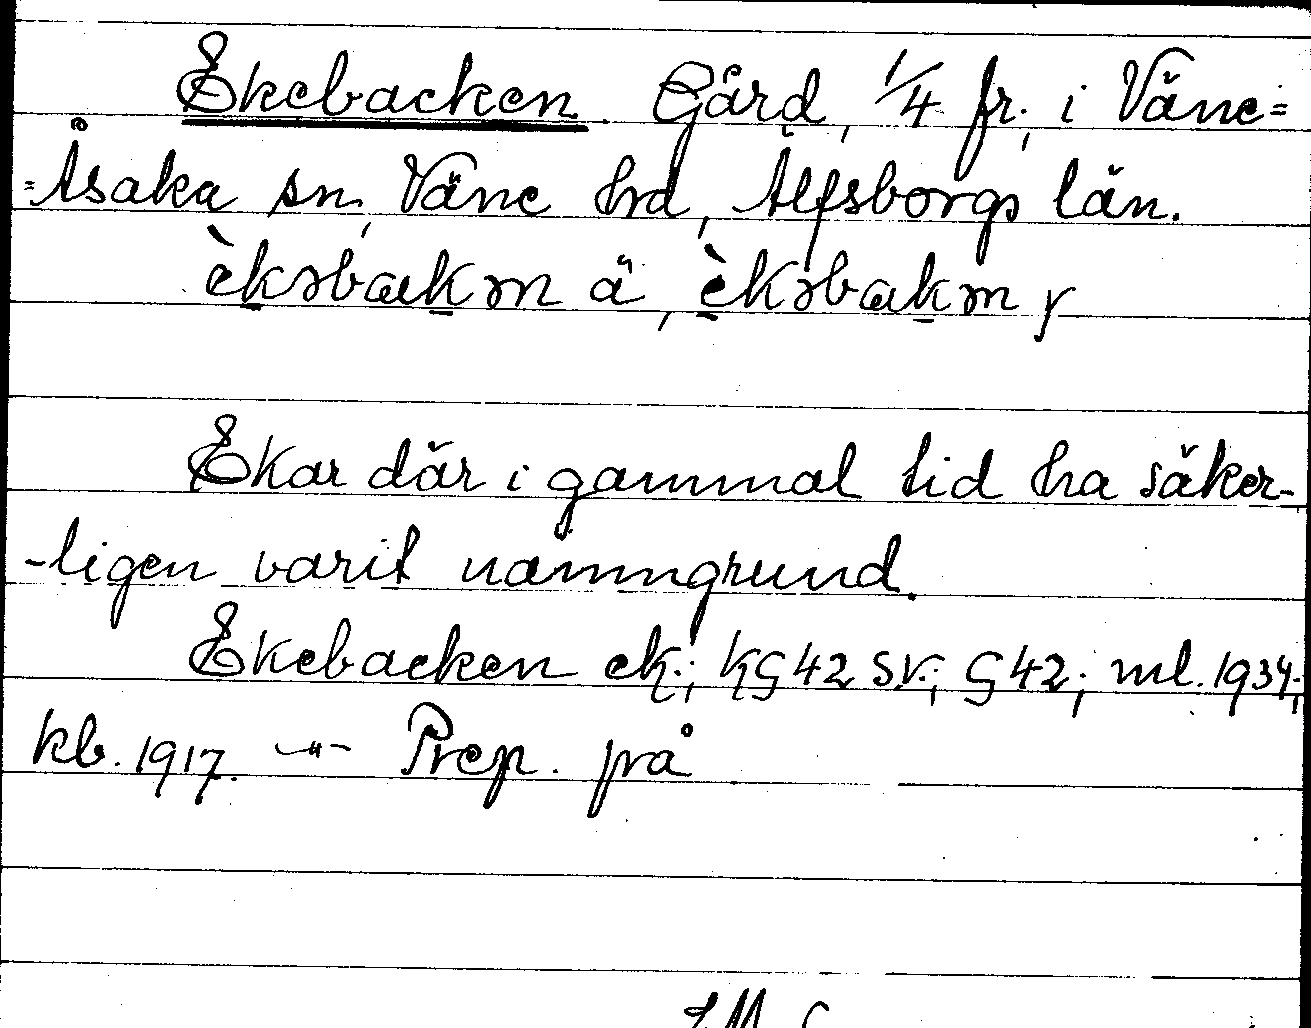 Ekebacken. Gård, 1/4 fr., i Väne=
=Åsaka sn, Väne hd, Älfsborgs län.
èkəbakəṇ ä, èkəbakəṇ y
Ekar där i gammal tid ha säker-
-ligen varit namngrund.
Ekebacken ek.; KG 42 sv.; G 42; ml. 1934;
kb. 1917. –"– Prep. på